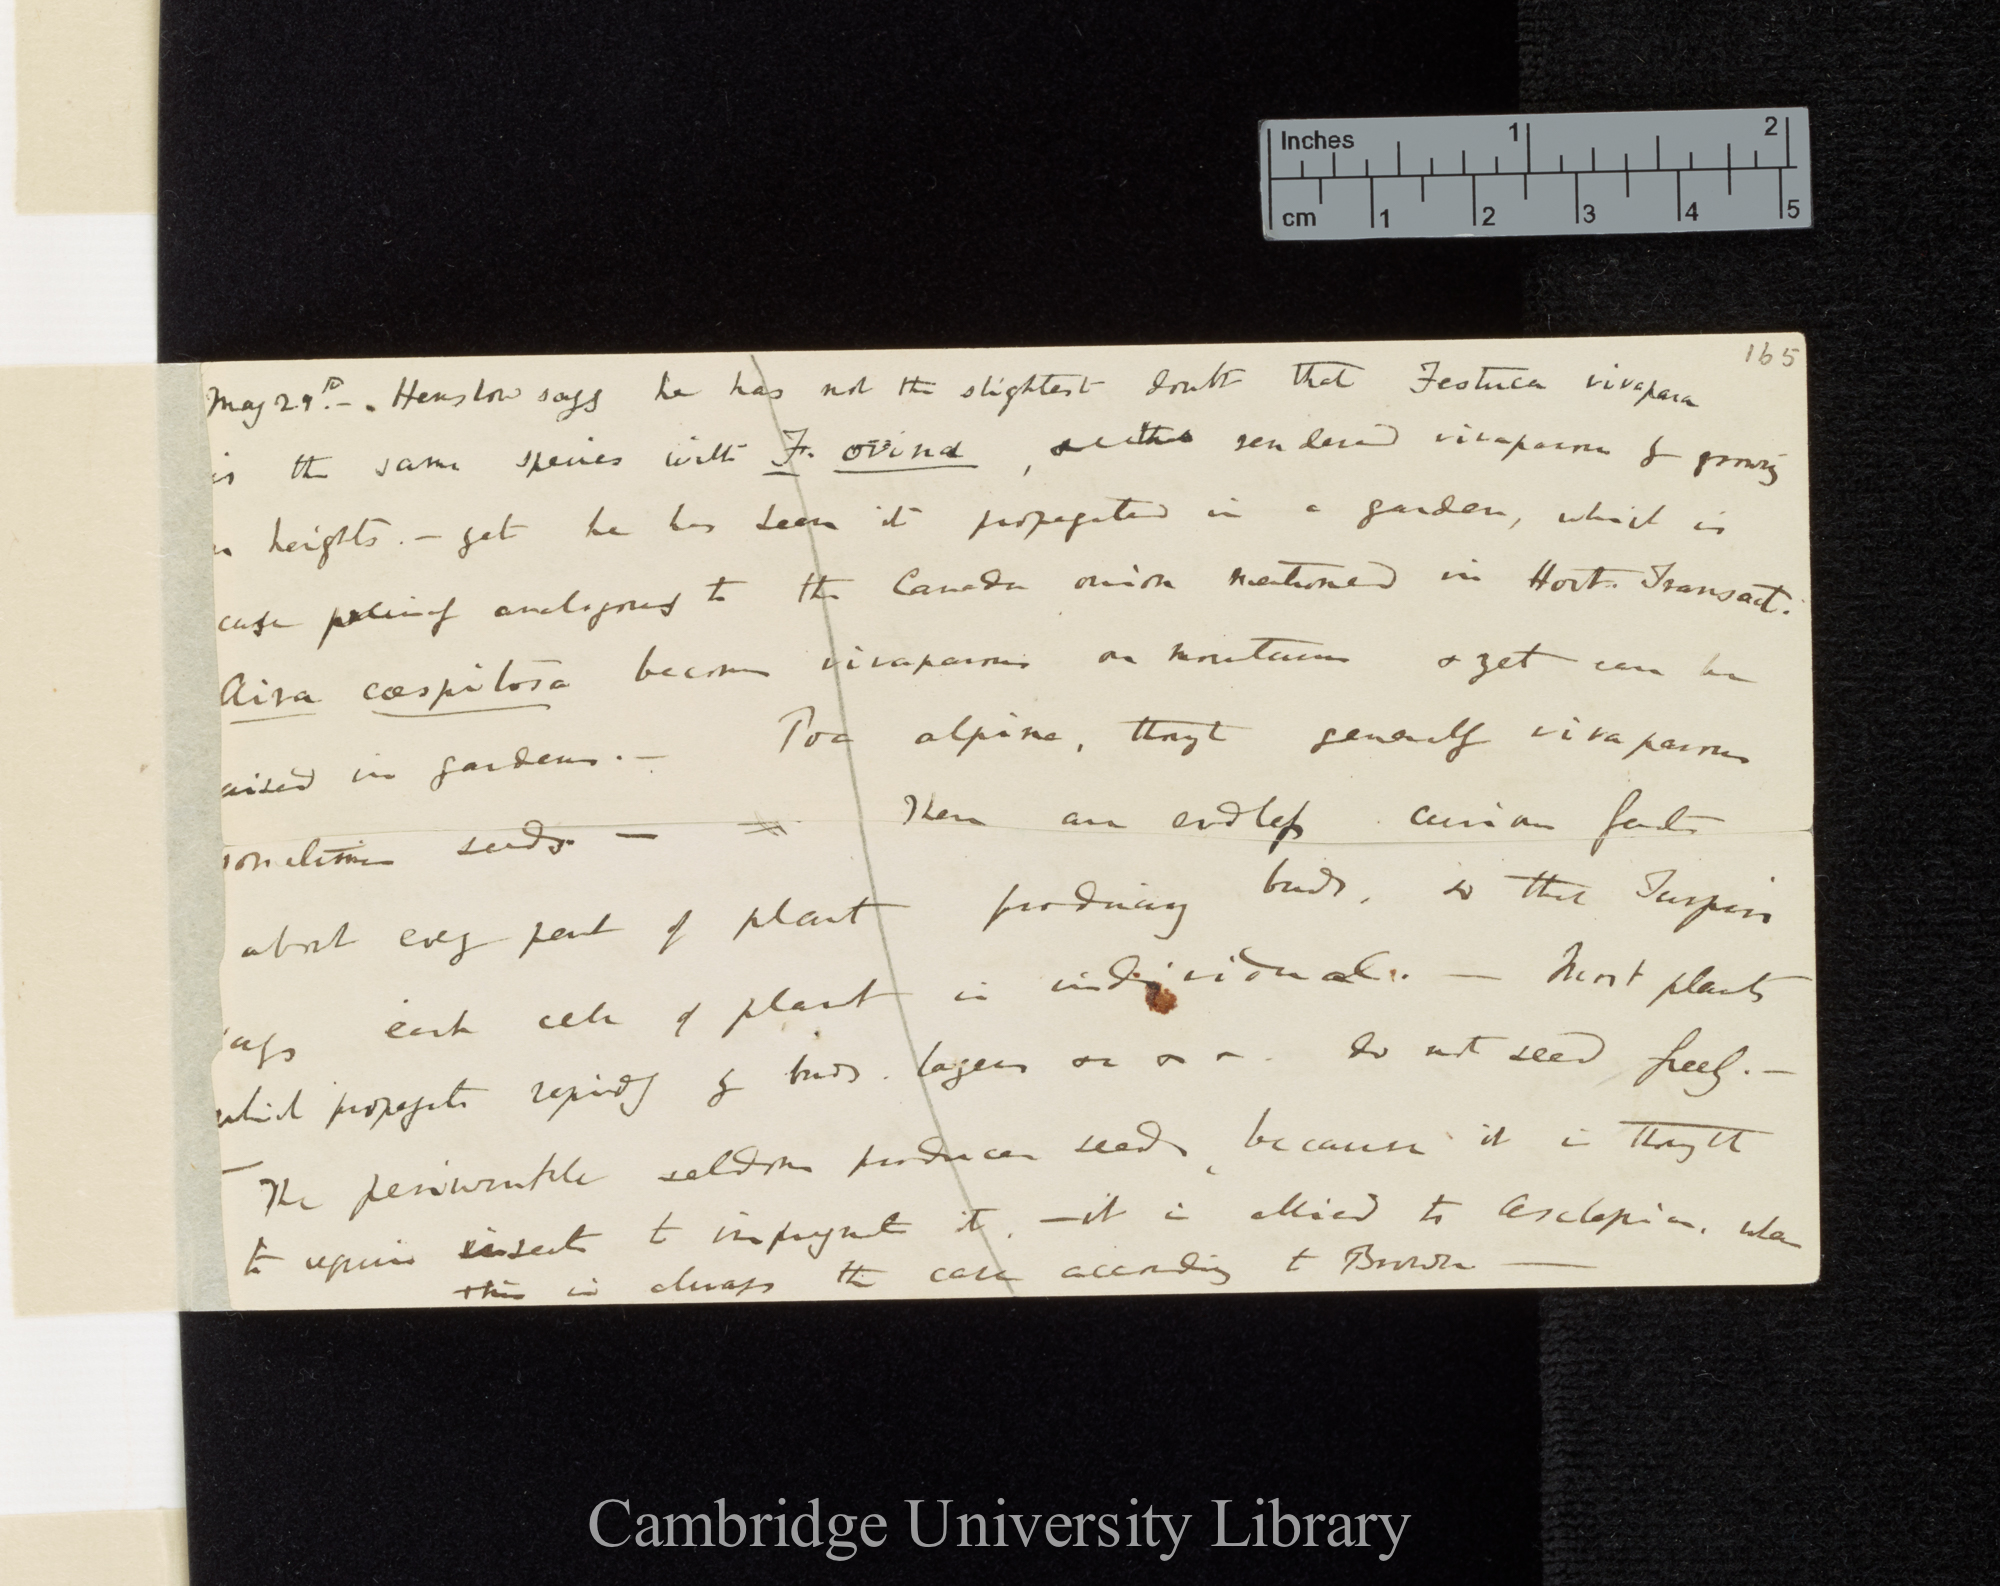 Inches 1 2
cm 1 2 3 4 5
165
May 29th.—. Henslow says he has not the slightest doubt that Festuca vivapara
is the same species with F. ovina, rendered viviparous by growing
n heights.— yet he has seen it propagated in a garden, which is
case analogous to the Canada onion mentioned in Hort. Transact.
Aira cæspitosa becomes viviparous on mountains & yet can be
aised in gardens.— Poa alpina, though generally viviparous
sometimes seeds — There are endless curious facts
about every part of plant producing buds, so that Turpin
says each cell of plant is individual.— Most plants
which propagate rapidly by buds. layers &c &c. do not seed freely.—
— The periwinkle seldom produces seeds, because it is thought
to require insects to impregnate it.— it is allied to Asclepias, where
this is always the case according to Brown —
Cambridge University Library